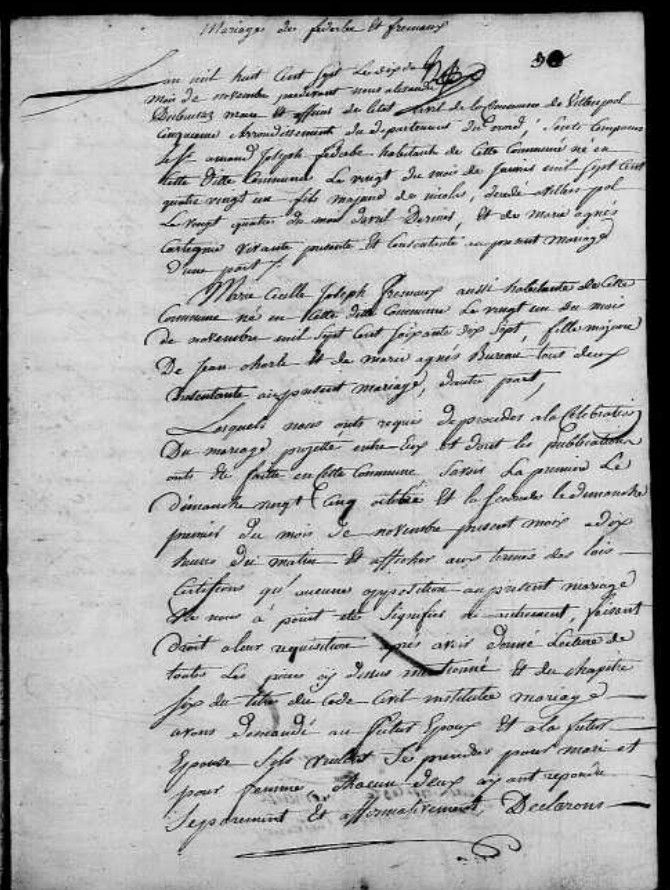 Mariage de fiderbe et fremaux
Lan mil huit Cent Sept Le dix de
mois de novembre pardevant nous
Dubuissez maire et officier de letat Civil de la Commune de Villerspol
Cinquieme Arrondissement du departement du nord, Sont Comparus
le Sr. amand Joseph fiderbe habitante de Cette Commune né en
Cette ditte Commune Le vingt du mois de mil Sept Cent
quatre vingt un fils majeur de nicolas, décédé villers pol
Le vingt quatre du mois davril Dernier, Et de marie agnés
vivante presente Et Consentante au present mariage
d'une part
Marie Cecille Joseph fremaux aussi habitante de Cette
Commune né en Cette ditte Commune Le vingt un du mois
de novembre mil Sept Cent Soixante dix Sept, fille majeure
De Jean charle Et de marie agnés Bureau tous deux
Consentante au present mariage, dautre part,
Lesquels nous onts requis de proceder a la Celebration
Du mariage projetté entre Eux et dont les publications
onts été faitte en Cette Commune Savoir La premiere Le
dimanche vingt Cinq octobre Et la Seconde le dimanche
premier du mois de novembre present mois a dix
heures du matin Et afficher aux termes des lois
Certifions qu'aucunes opposition au present mariage
Ne nous à point été Signifier ni autrement, faisant
Droit a leur requisition aprés avoir donné Lecture de
toutes Les pieces cy dessus mentionné Et du chapitre
Six du titre du Code Civil intitulée mariage
avons demandé au futur Epoux Et a la future
Epouse Sils veulent Se prendre pour mari et
pour femme, chacune deux ayant repondu
Separement Et affirmativement, Declarons